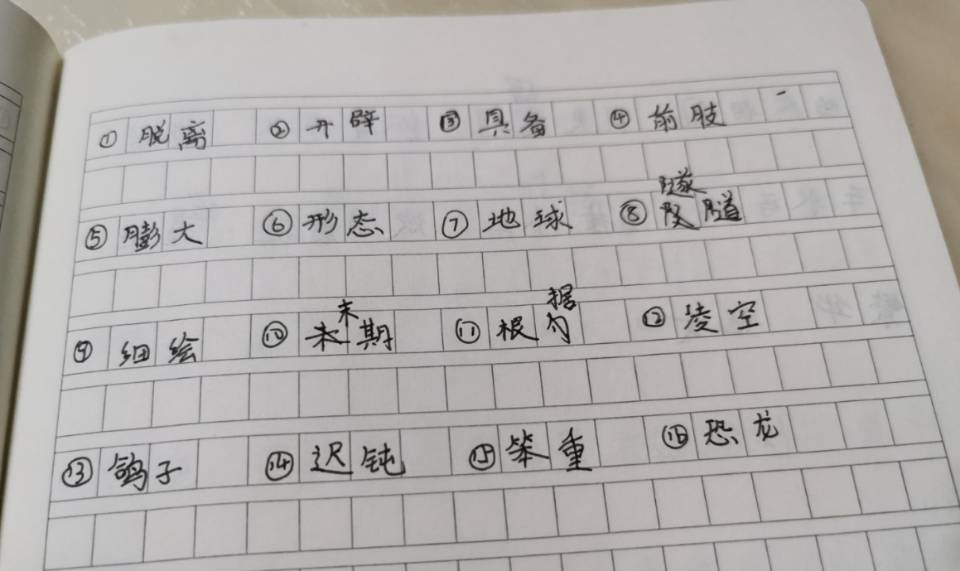 ① 脱离 ② 开辟 ③ 具备 ④ 前肢
⑤ 膨大 ⑥ 形态 ⑦ 地球 ⑧ 隧道
⑨ 细绘 ⑩ 末期 ⑪ 根据 ⑫ 凌空
⑬ 鸽子 ⑭ 迟钝 ⑮ 笨重 ⑯ 恐龙